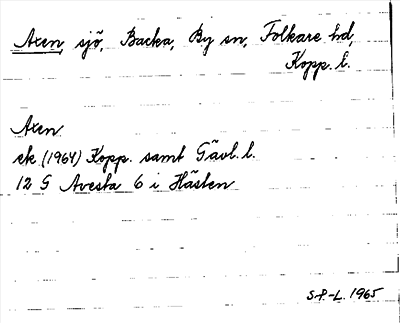 Axen, sjö, Backa, By sn, Folkare hd,
Kopp. l.
Axen
ek. (1964) Kopp. samt Gävl. l.
12 G Avesta 6 i Hästen
S.P.-L. 1965